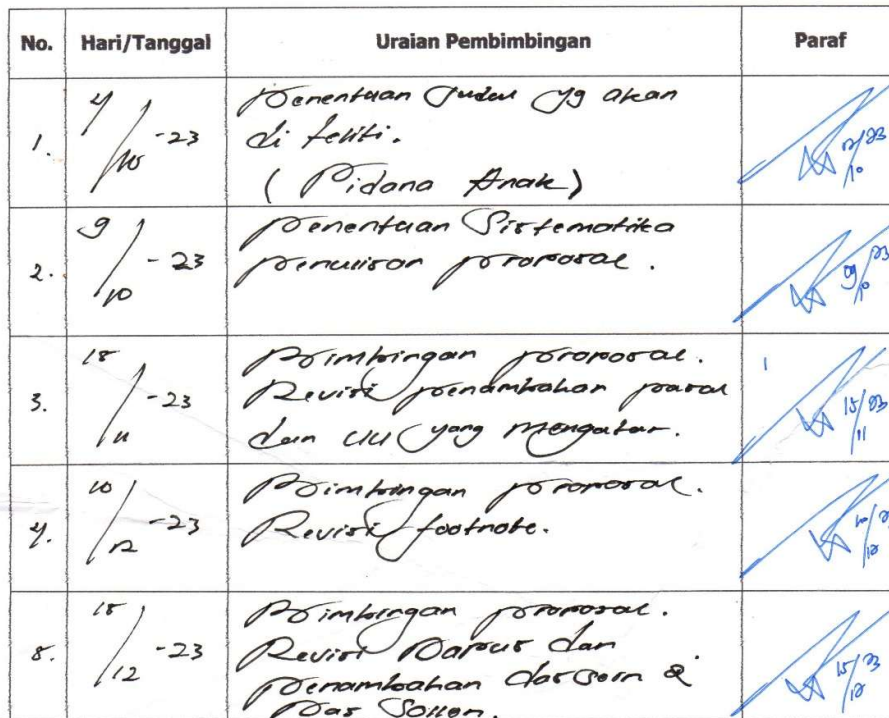 No. Hari/Tanggal Uraian Pembimbingan Paraf
1. 4/10 -23 Penentuan Judul yg akan
di teliti.
(Pidana Anak)
2. 9/10 -23 Penentuan Sistematika
penulisan proposal. 9/10 23
3. 15/11 -23 Bimbingan proposal.
Revisi penambahan pasal
dan UU yang mengatur. 15/11 23
4. 10/12 -23 Bimbingan proposal.
Revisi footnote.
5. 15/12 -23 Bimbingan proposal.
Revisi Dapus dan
Penambahan das Sein &
Das Sollen. 15/12 23